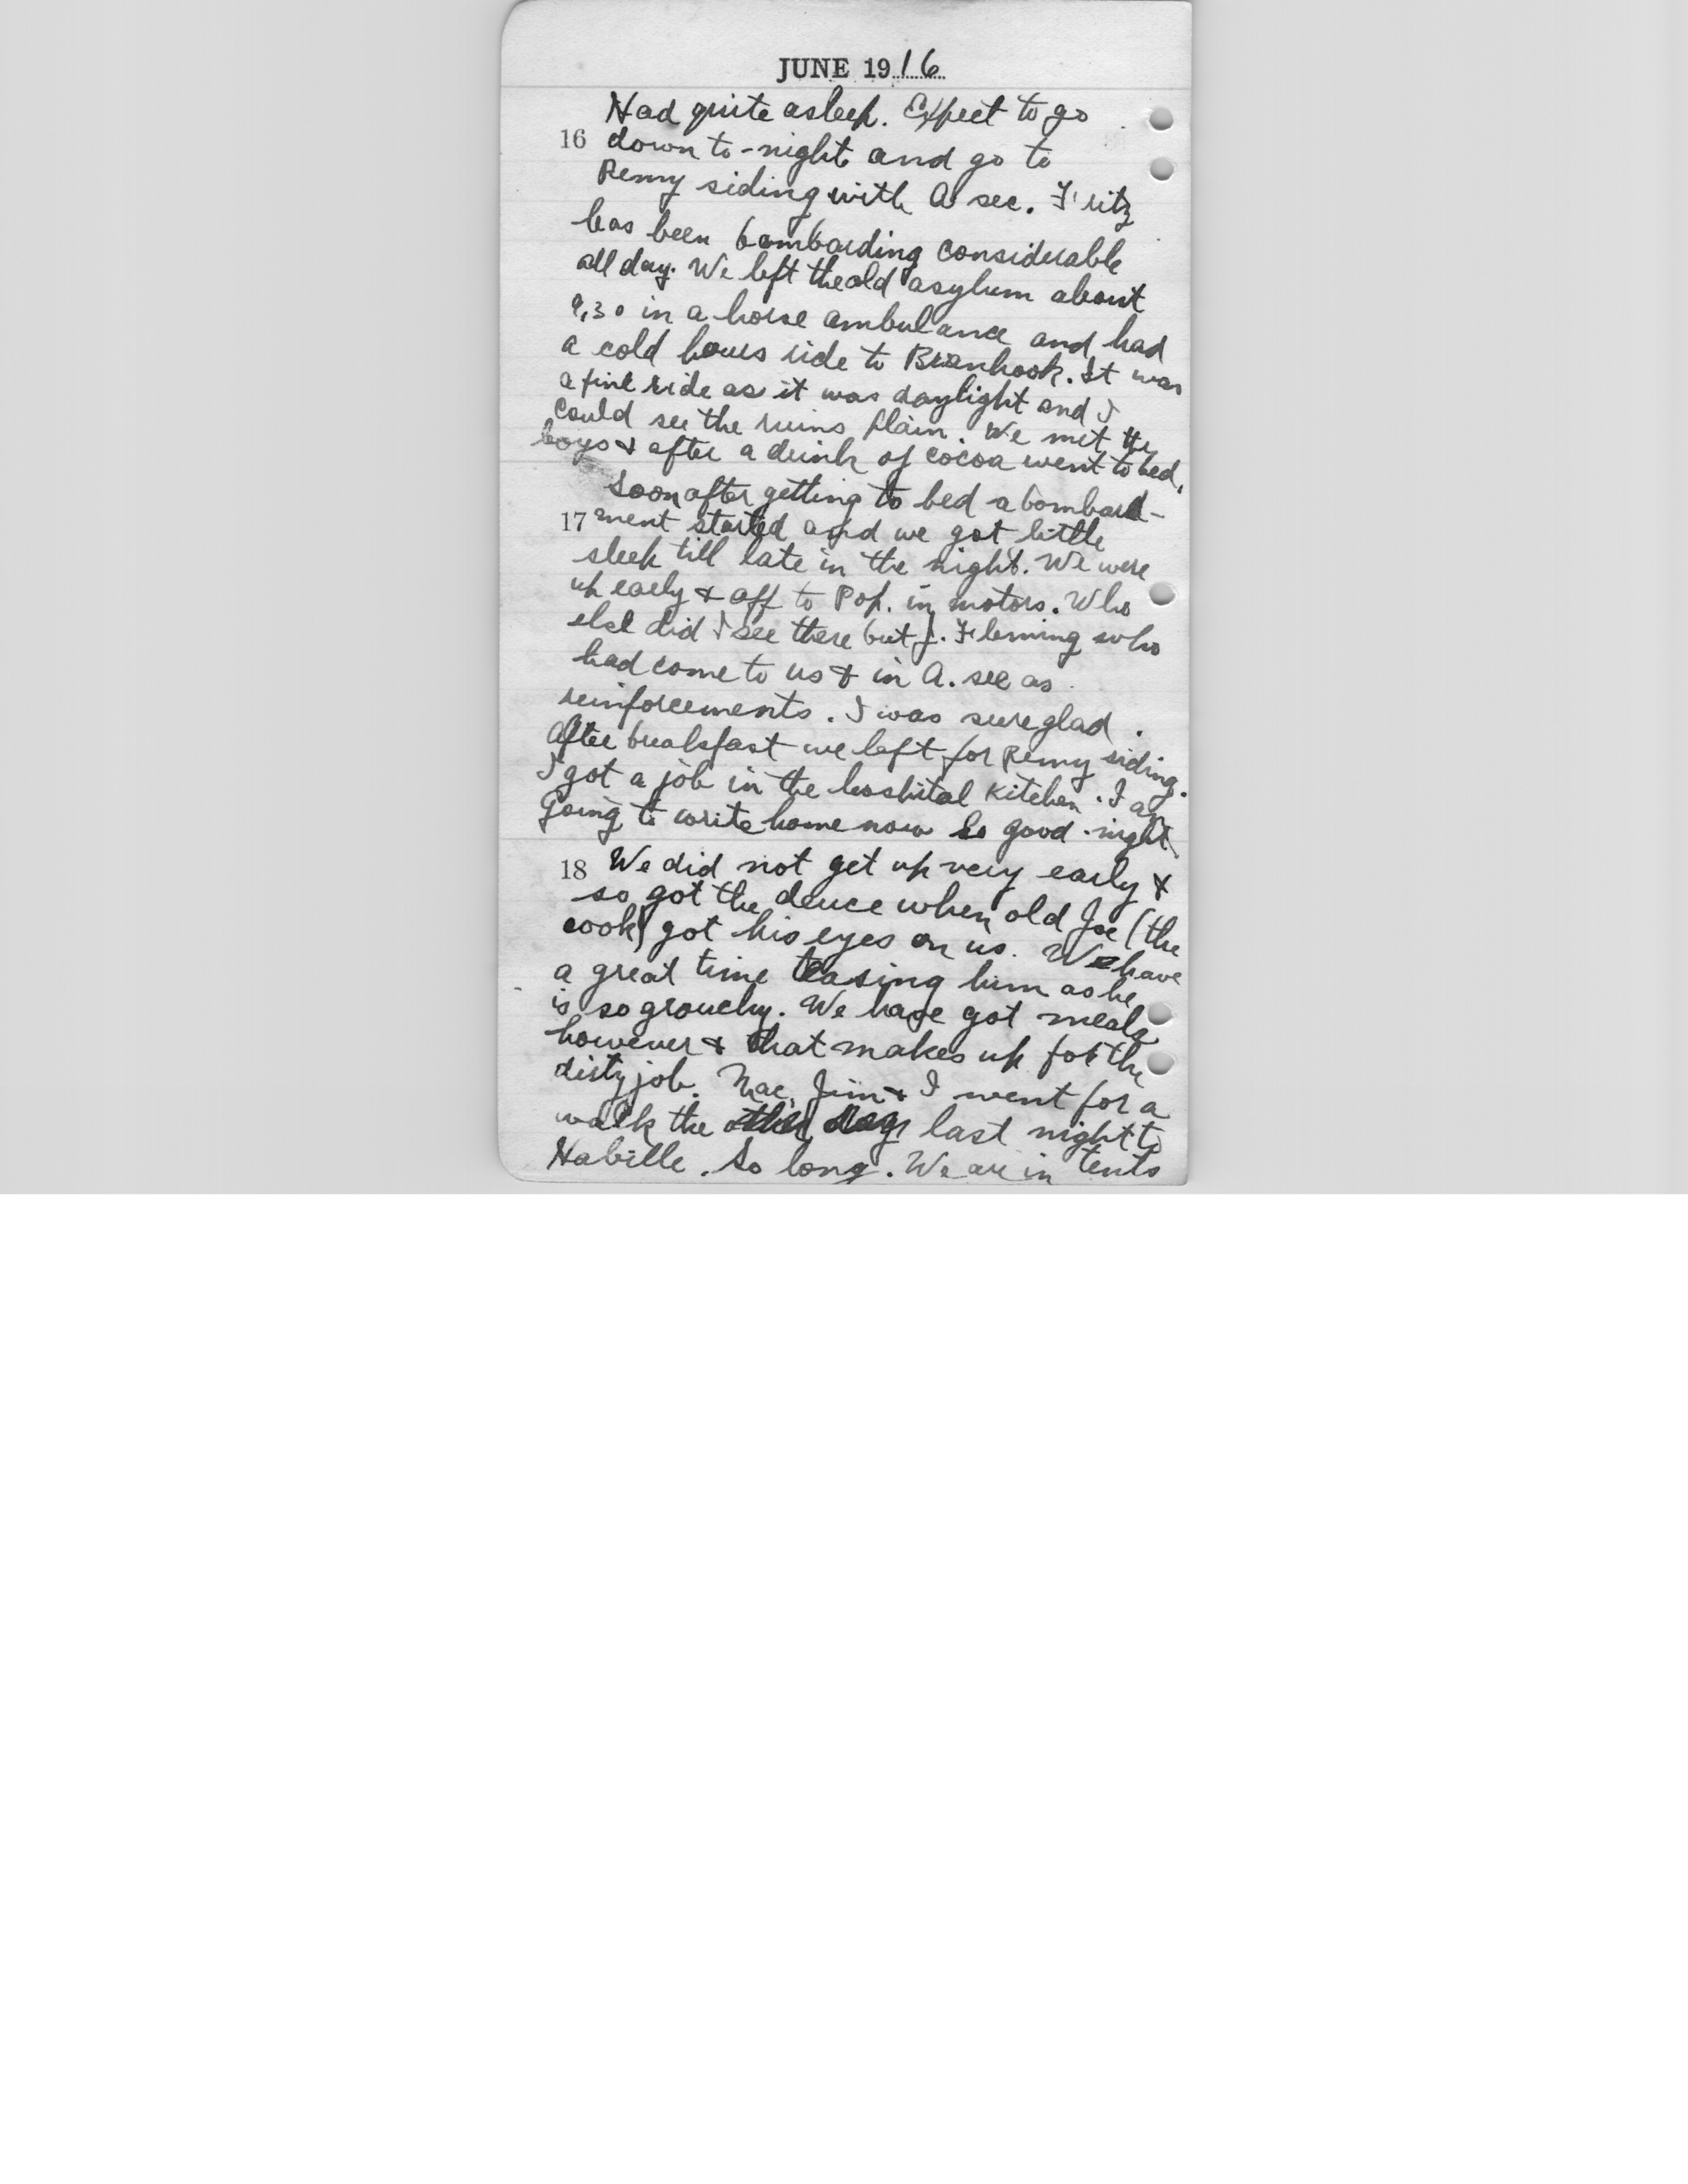 JUNE 1916
Had quite a sleep. Expect to go
16 down to-night and go to
Remy siding with A sec. Fritz
has been bombarding considerable
all day. We left the old asylum about
9,30 in a horse ambulance and had
a cold hours ride to Branhook. It was
a fine ride as it was daylight and I
could see the ruins plain. We met the
boys & after a drink of cocoa went to bed.
Soon after getting to bed a bombard-
17 ment started and we got little
sleep till late in the night. We were
up early & off to Pop. in motors. Who
else did I see there but J. Fleming who
had come to us & in A. sec as
reinforcements. I was sure glad.
After breakfast we left for Remy siding.
I got a job in the hospital kitchen. I am
going to write home now so good-night
18 We did not get up very early &
so got the deuce when old Joe (the
cook) got his eyes on us. We have
a great time teasing him as he
is so grouchy. We have got meals
however & that makes up for the
dirty job. Mac, Jim & I went for a
walk the other day last night to
Habille. So long. We are in tents